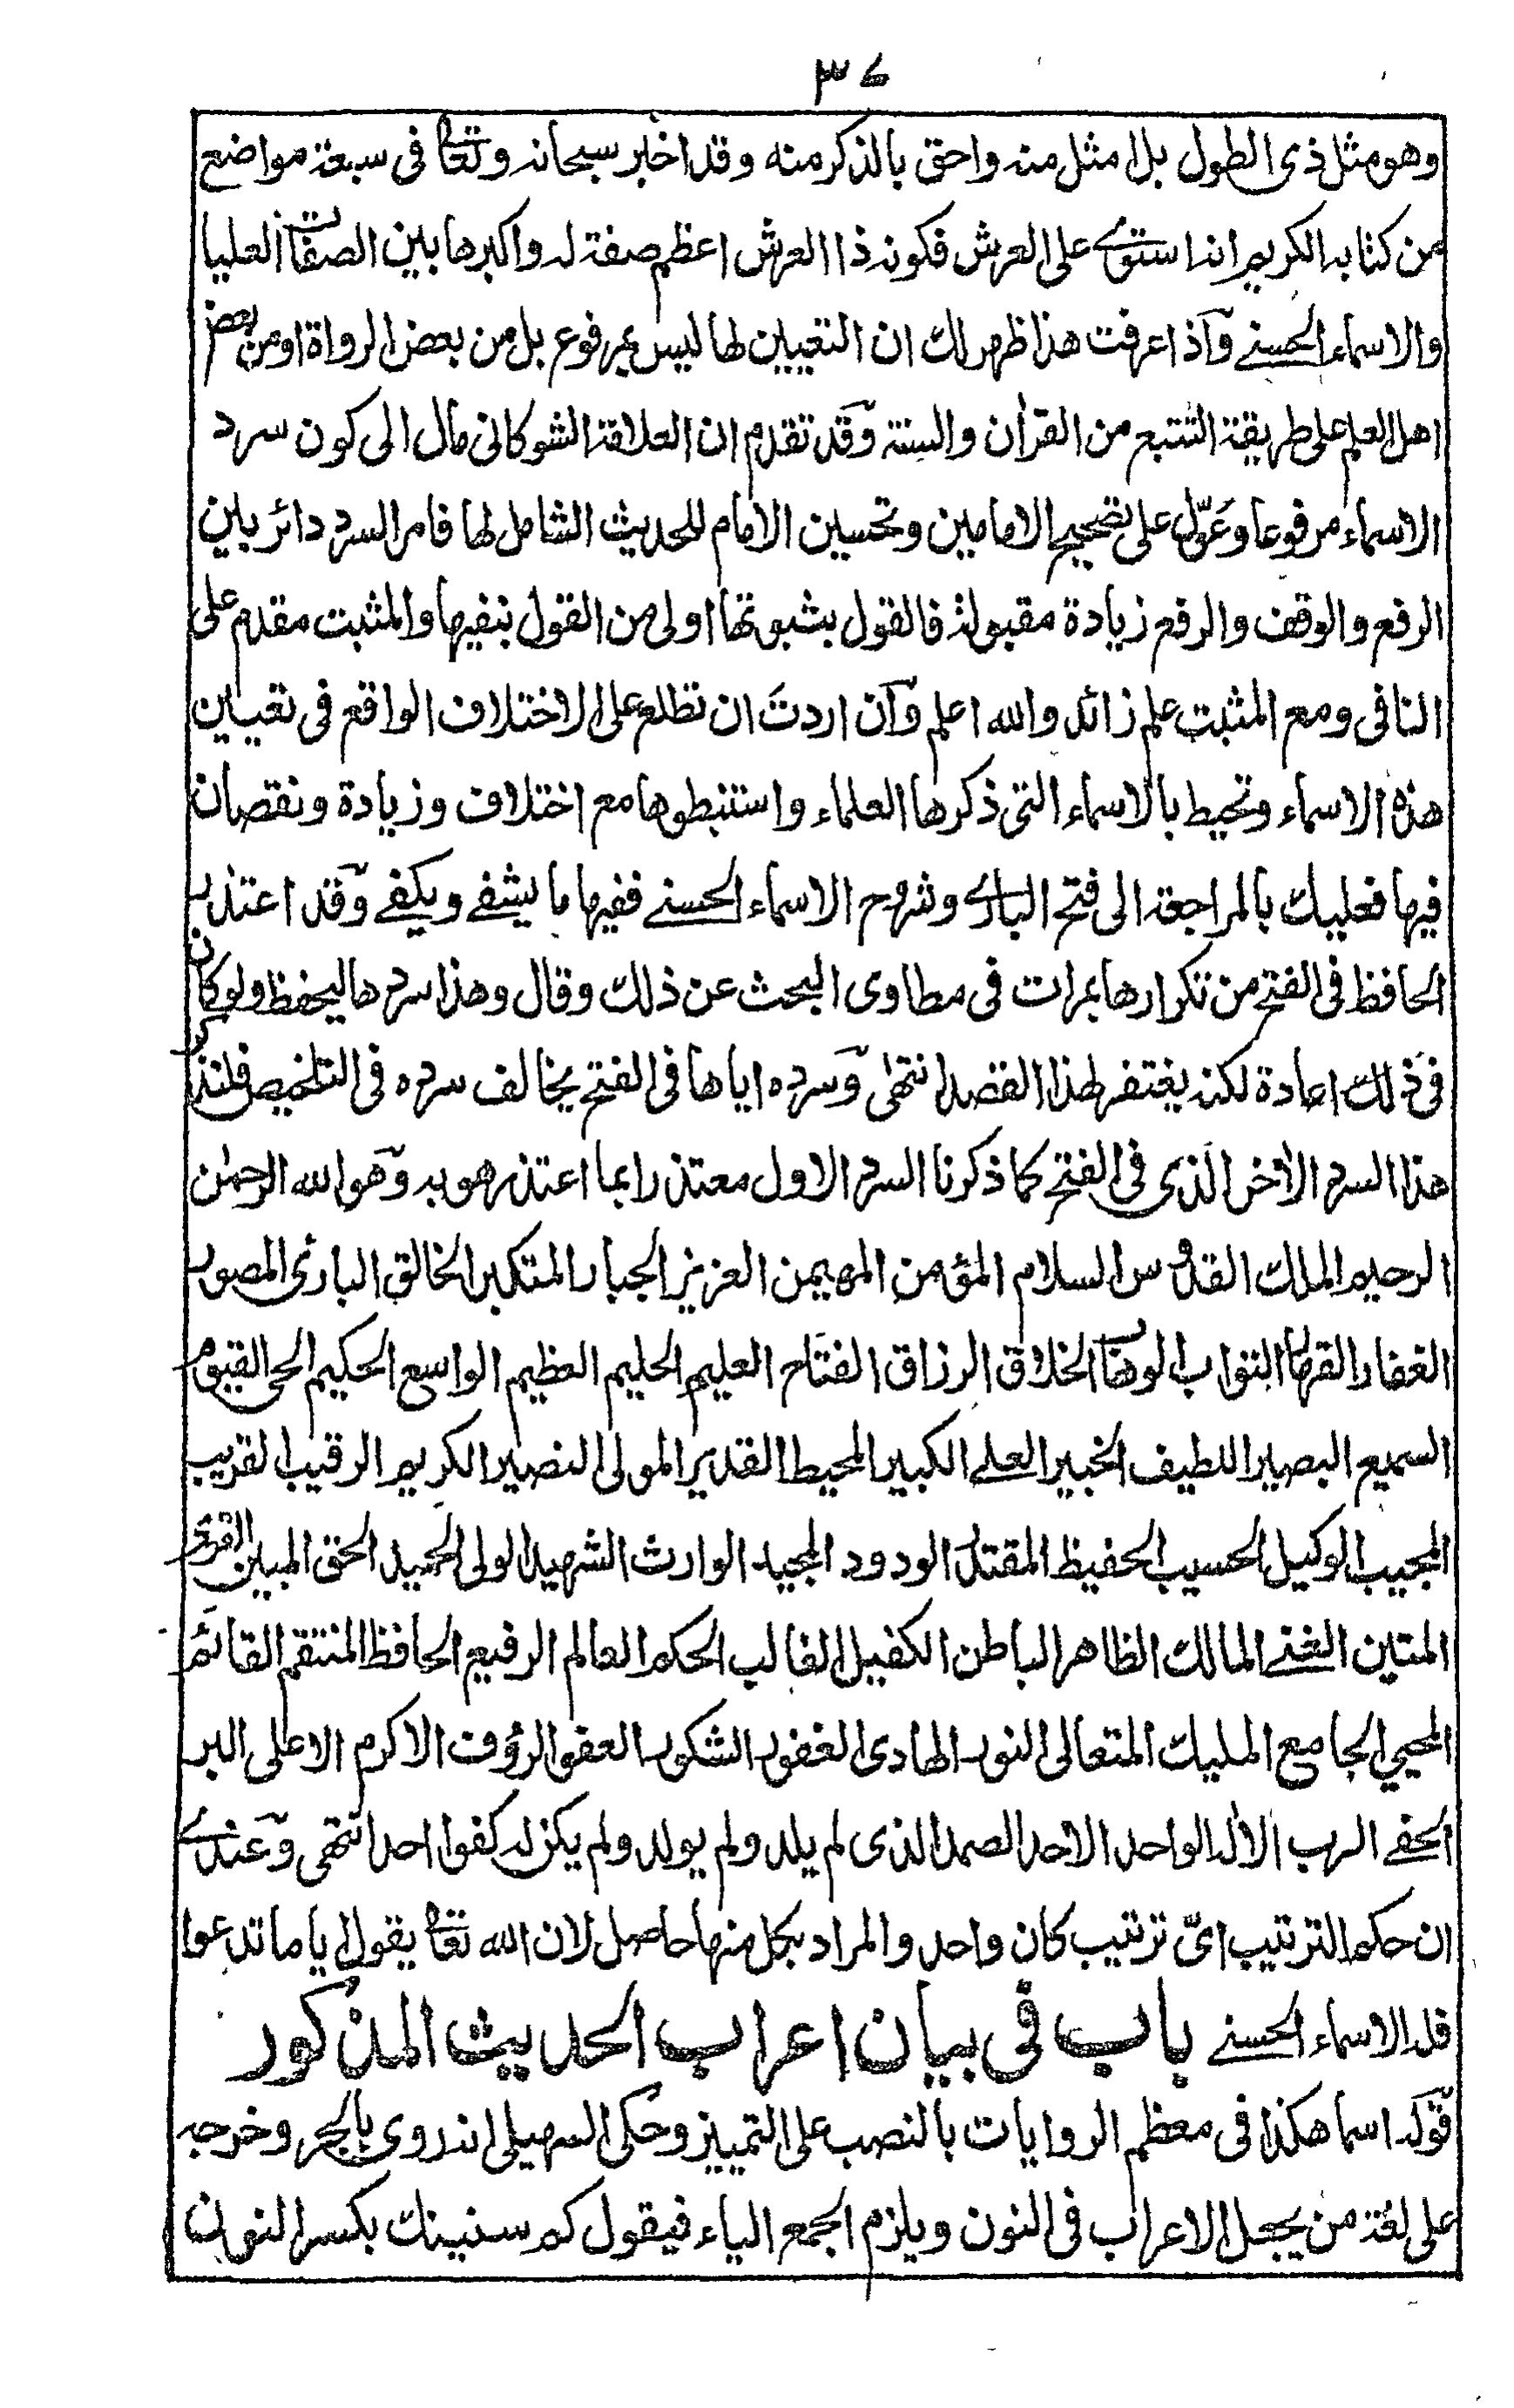 ٣٤
وهو مثل ذى الطول بل امثل منه واحق بالذكر منه وقد اخبر سبحانه وتعالى فى سبعة مواضع
من كتابه الكريم انه استوى على العرش فكونه ذا العرش اعظم صفة له واكبرها بين الصفات العليا
والاسماء الحسنے وآذ اعرفت هذا ظهر لك ان التعيين لها ليس بمرفوع بل من بعض الرواة اومن بعض
اهل العلم على طريقة التتبع من القرآن والسنة وقد تقدم ان العلامة الشوكانى مال الى كون سرد
الاسماء مرفوعا وعوّل على تصحيح الامامين وتحسين الامام للحديث الشامل لها فامر السرد دائر بين
الرفع والوقف والرفع زيادة مقبولة فالقول بثبوتها اولى من القول بنفيها والمثبت مقدم على
النافى ومع المثبت علم زائد والله اعلم وآن اردت ان تطلع على الاختلاف الواقع فى تعيين
هذه الاسماء وتحيط بالاسماء التى ذكرها العلماء واستنبطوها مع اختلاف وزيادة ونقصان
فيها فعليك بالمراجعة الى فتح البارے وشروح الاسماء الحسنے ففيها ما يشفے ويكفے وقد اعتذر
الحافظ فى الفتح من تكرارها بمرات فى مطاوى البحث عن ذلك وقال وهذا سردها ليحفظ ولو كان
فى ذلك اعادة لكنه يغتفر لهذا القصد انتهى وسرده اياها فى الفتح يخالف سرده فى التلخيص فلنذكر
هذا السرد الآخر الذى فى الفتح كما ذكرنا السرد الاول معتذرا بما اعتذر هو به وهو الله الرحمٰن
الرحيم الملك القدوس السلام المؤمن المهيمن العزيز الجبار المتكبر الخالق البارئ المصور
الغفار القهار التواب الوهاب الخلاق الرزاق الفتاح العليم الحليم العظيم الواسع الحكيم الحى القيوم
السميع البصير اللطيف الخبير العلے الكبير المحيط القدير المولى النصير الكريم الرقيب القريب
المجيب الوكيل الحسيب الحفيظ المقتدر الودود المجيد الوارث الشهيد الولى الحميد الحق المبين القوى
المتين الغنے المالك الظاهر الباطن الكفيل الغالب الحكم العالم الرفيع الحافظ المنتقم القائم
المحيي الجامع المليك المتعالى النور الهادى الغفور الشكور العفو الرؤوف الاكرم الاعلى البر
الحفے الرب الالٰه الواحد الاحد الصمد الذى لم يلد ولم يولد ولم يكن له كفوا احد انتهى وعندے
ان حكم الترتيب اىّ ترتيب كان واحد والمراد بكل منها حاصل لان الله تعالى يقول ايا ما تدعوا
فله الاسماء الحسنے باب فى بيان اعراب الحديث المذكور
قوله اسما هكذا فى معظم الروايات بالنصب على التمييز وحكى السهيلى انه روى بالجر وخرجه
على لغة من يجعل الاعراب فى النون ويلزم الجمع الياء فيقول كم سنينك بكسر النون